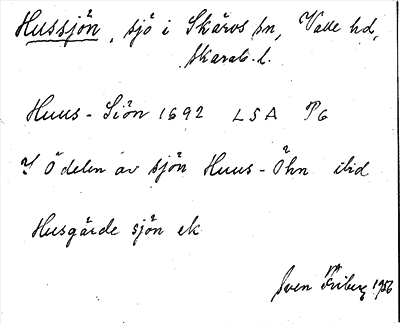 Hussjön, sjö i Skärvs sn, Valle hd,
Skarab. l.
Huus-Siön 1692 LSA P6
I Ö delen av sjön Huus-Öhn ibid
Husgärde sjön ek
Sven Friberg 1956